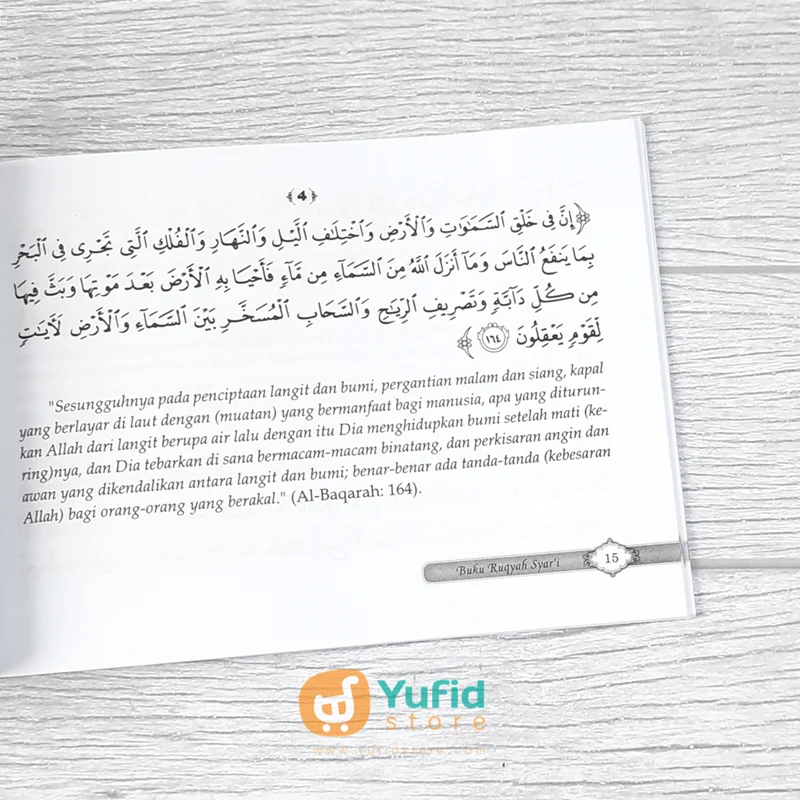 ﴾4﴿
﴿إِنَّ فِي خَلْقِ ٱلسَّمَـٰوَٰتِ وَٱلْأَرْضِ وَٱخْتِلَـٰفِ ٱلَّيْلِ وَٱلنَّهَارِ وَٱلْفُلْكِ ٱلَّتِي تَجْرِى فِي ٱلْبَحْرِ
بِمَا يَنفَعُ ٱلنَّاسَ وَمَآ أَنزَلَ ٱللَّهُ مِنَ ٱلسَّمَآءِ مِن مَّآءٍ فَأَحْيَا بِهِ ٱلْأَرْضَ بَعْدَ مَوْتِهَا وَبَثَّ فِيهَا
مِن كُلِّ دَآبَّةٍ وَتَصْرِيفِ ٱلرِّيَـٰحِ وَٱلسَّحَابِ ٱلْمُسَخَّرِ بَيْنَ ٱلسَّمَآءِ وَٱلْأَرْضِ لَـَٔايَـٰتٍ
لِّقَوْمٍ يَعْقِلُونَ ١٦٤﴾
"Sesungguhnya pada penciptaan langit dan bumi, pergantian malam dan siang, kapal
yang berlayar di laut dengan (muatan) yang bermanfaat bagi manusia, apa yang diturun-
kan Allah dari langit berupa air lalu dengan itu Dia menghidupkan bumi setelah mati (ke-
ring)nya, dan Dia tebarkan di sana bermacam-macam binatang, dan perkisaran angin dan
awan yang dikendalikan antara langit dan bumi; benar-benar ada tanda-tanda (kebesaran
Allah) bagi orang-orang yang berakal." (Al-Baqarah: 164).
Buku Ruqyah Syar'i 15
Yufid
store
www.yufidstore.com